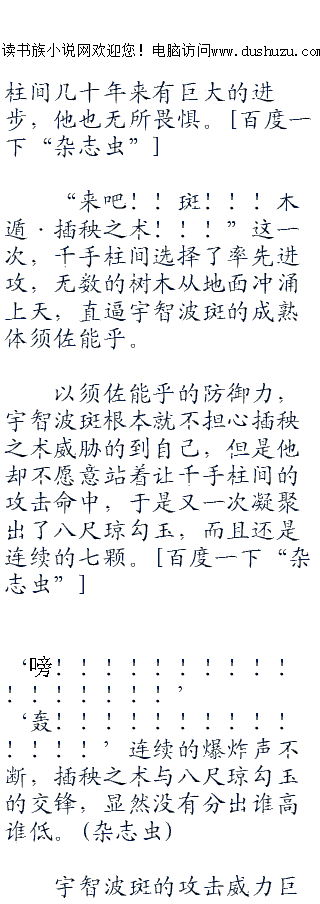 读书族小说网欢迎您！电脑访问www.dushuzu.com
柱间几十年来有巨大的进
步，他也无所畏惧。[百度一
下“杂志虫”]
“来吧！！斑！！！木
遁·插秧之术！！！”这一
次，千手柱间选择了率先进
攻，无数的树木从地面冲涌
上天，直逼宇智波斑的成熟
体须佐能乎。
以须佐能乎的防御力，
宇智波斑根本就不担心插秧
之术威胁的到自己，但是他
却不愿意站着让千手柱间的
攻击命中，于是又一次凝聚
出了八尺琼勾玉，而且还是
连续的七颗。[百度一下“杂
志虫”]
‘嗙！！！！！！！！！！
！！！！！！！’
‘轰！！！！！！！！！！
！！！！’连续的爆炸声不
断，插秧之术与八尺琼勾玉
的交锋，显然没有分出谁高
谁低。(杂志虫)
宇智波斑的攻击威力巨